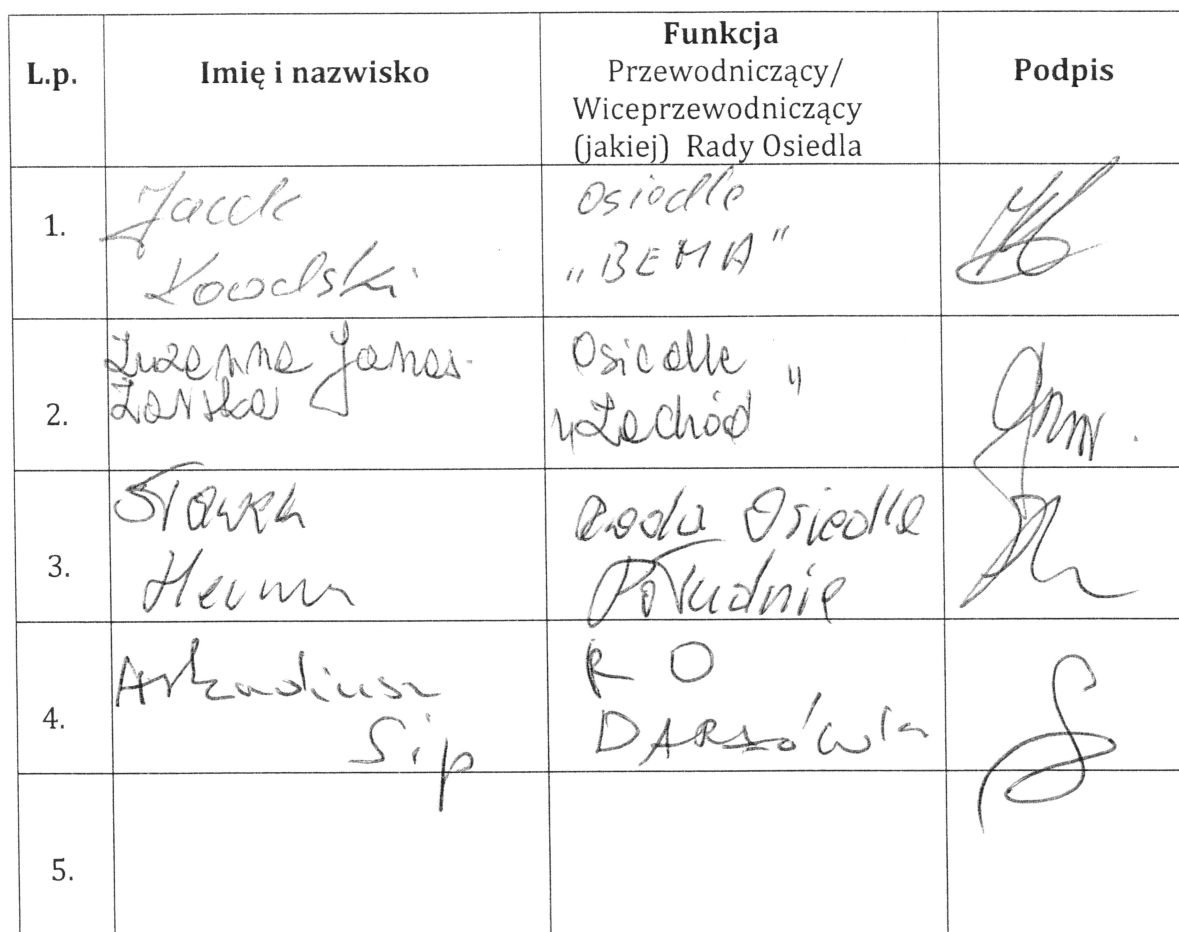 L.p.
Imię i nazwisko
Funkcja
Przewodniczący/
Wiceprzewodniczący
(jakiej) Rady Osiedla
Podpis
1.
Jacek
osiedle
„BEMA"
2.
Zuzanna Janas-
Zarska
Osiedle
„Zachód"
3.
Sławek
Rada Osiedla
Południe
4.
Arkadiusz
Sip
R O
DARZÓWIA
5.